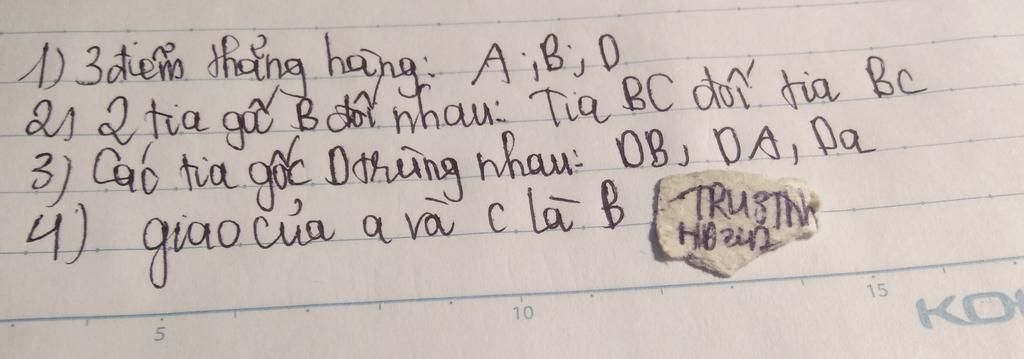 1) 3 điểm thẳng hàng: A; B; D
2) 2 tia gốc B đối nhau: Tia BC đối tia BC
3) Các tia gốc D trùng nhau: DB, DA, Da
4) giao của a và c là B
5 10 15